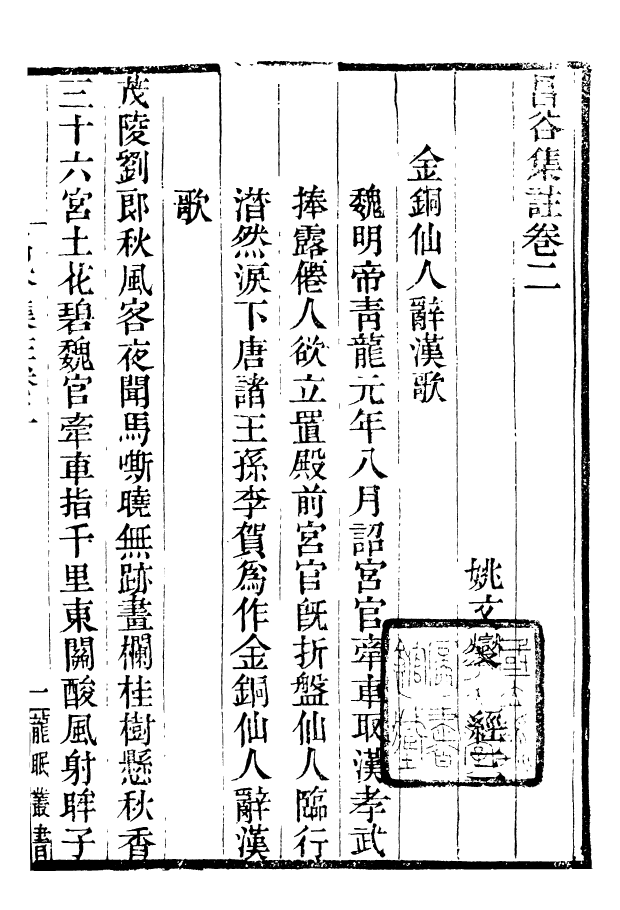 昌谷集註卷二
姚文燮 經三
金銅仙人辭漢歌
魏明帝靑龍元年八月詔宮官牽車取漢孝武
捧露僊人欲立置殿前宮官旣折盤仙人臨行
潸然淚下唐諸王孫李賀爲作金銅仙人辭漢
歌
茂陵劉郎秋風客夜聞馬嘶曉無跡畫欄桂樹懸秋香
三十六宮土花碧魏官牽車指千里東關酸風射眸子
一龍眠叢書